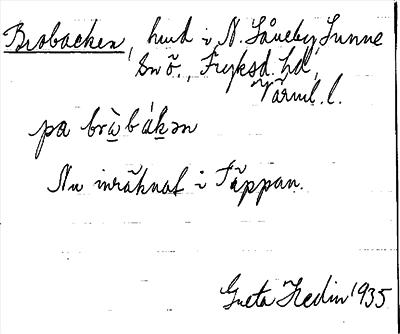 Brobacken, hmd i N. Såneby, Sunne
sn õ., Fryksd. hd,
Värml. l.
pa brɔ̀bákən
Nu inräknat i Täppan.
Greta Hedin 1935